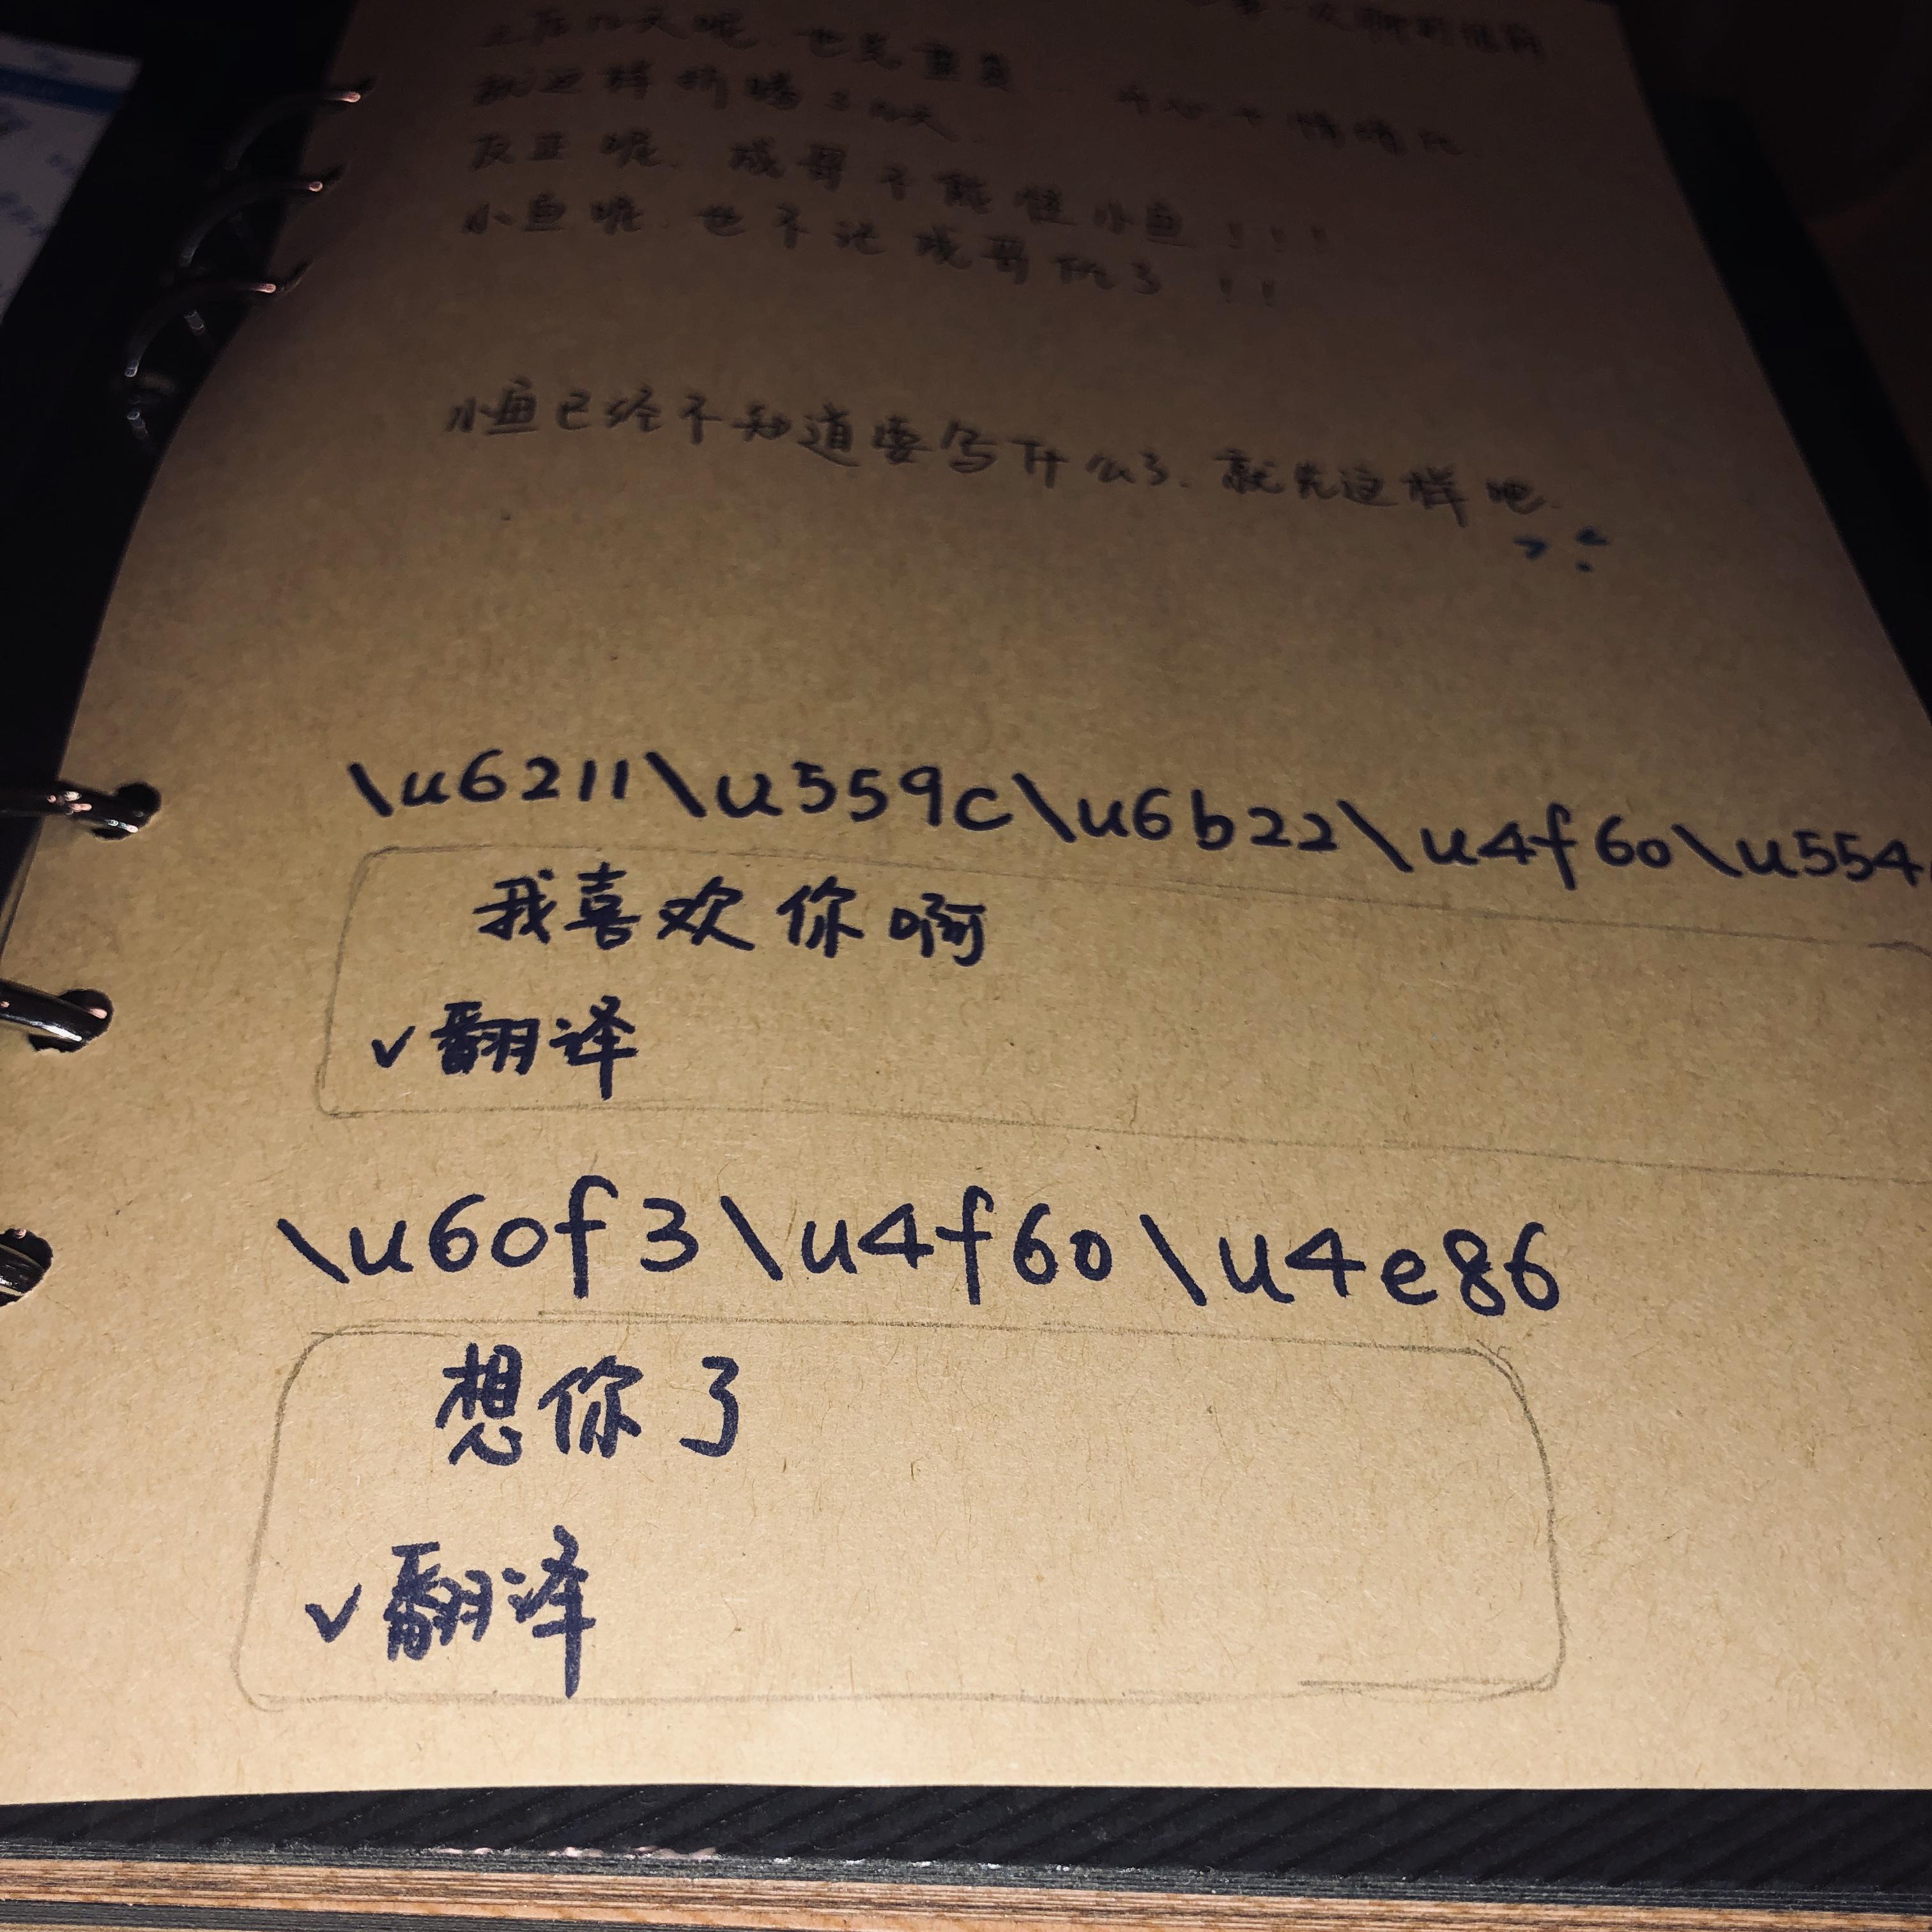 就这样折腾了几天.
反正呢. 成哥不能怪小鱼!!!
小鱼呢. 也不记成哥仇了!!
小鱼已经不知道要写什么了. 就先这样吧.
\u6211\u559c\u6b22\u4f60\u554
我喜欢你啊
✓翻译
\u60f3\u4f60\u4e86
想你了
✓翻译